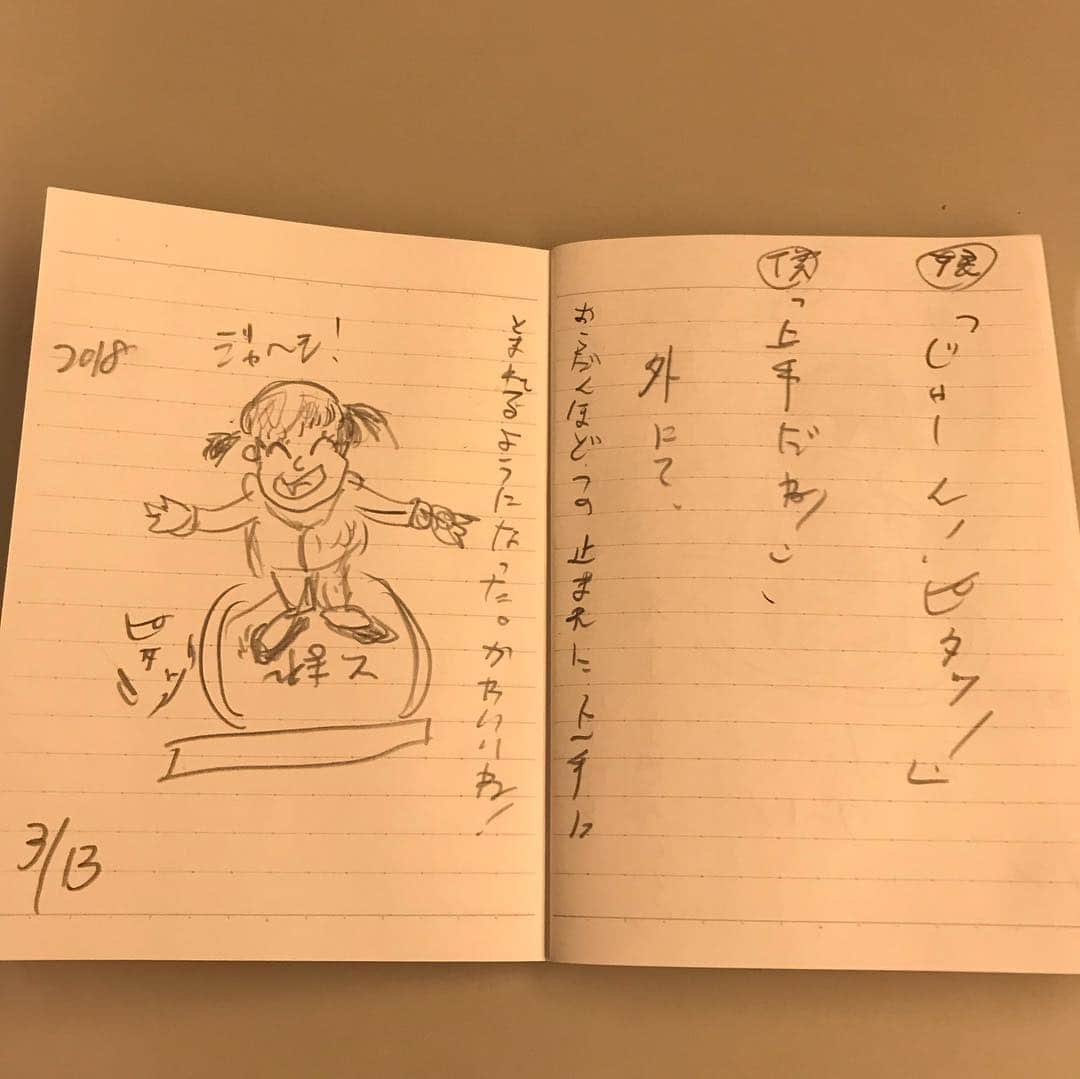 娘「じゃーん！ピタッ！」
僕「上手だね！」
外にて、
おうだんほどうの止まれに、上手に
とまれるようになった。かわいいね！
ジャ〜ン！
2018
ピタッ
3/13